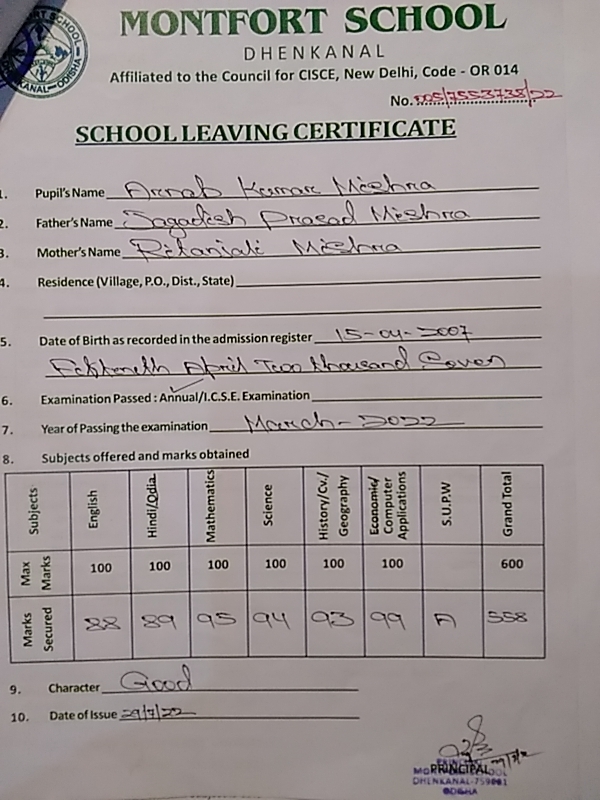 MONTFORT SCHOOL
DHENKANAL
Affiliated to the Council for CISCE, New Delhi, Code - OR 014
No. 005/7553738/22
SCHOOL LEAVING CERTIFICATE
1. Pupil's Name Arnab Kumar Mishra
2. Father's Name Jagadish Prasad Mishra
3. Mother's Name Ritanjali Mishra
4. Residence (Village, P.O., Dist., State)
5. Date of Birth as recorded in the admission register 15-04-2007
Fifteenth April Two thousand Seven
6. Examination Passed : Annual/I.C.S.E. Examination
7. Year of Passing the examination March-2022
8. Subjects offered and marks obtained
Subjects English Hindi/Odia Mathematics Science History/Cv./Geography Economic/Computer Applications S.U.P.W Grand Total
Max Marks 100 100 100 100 100 100 600
Marks Secured 88 89 95 94 93 99 A 558
9. Character Good
10. Date of Issue 29/7/22
PRINCIPAL
MONTFORT SCHOOL
DHENKANAL-759001
ODISHA